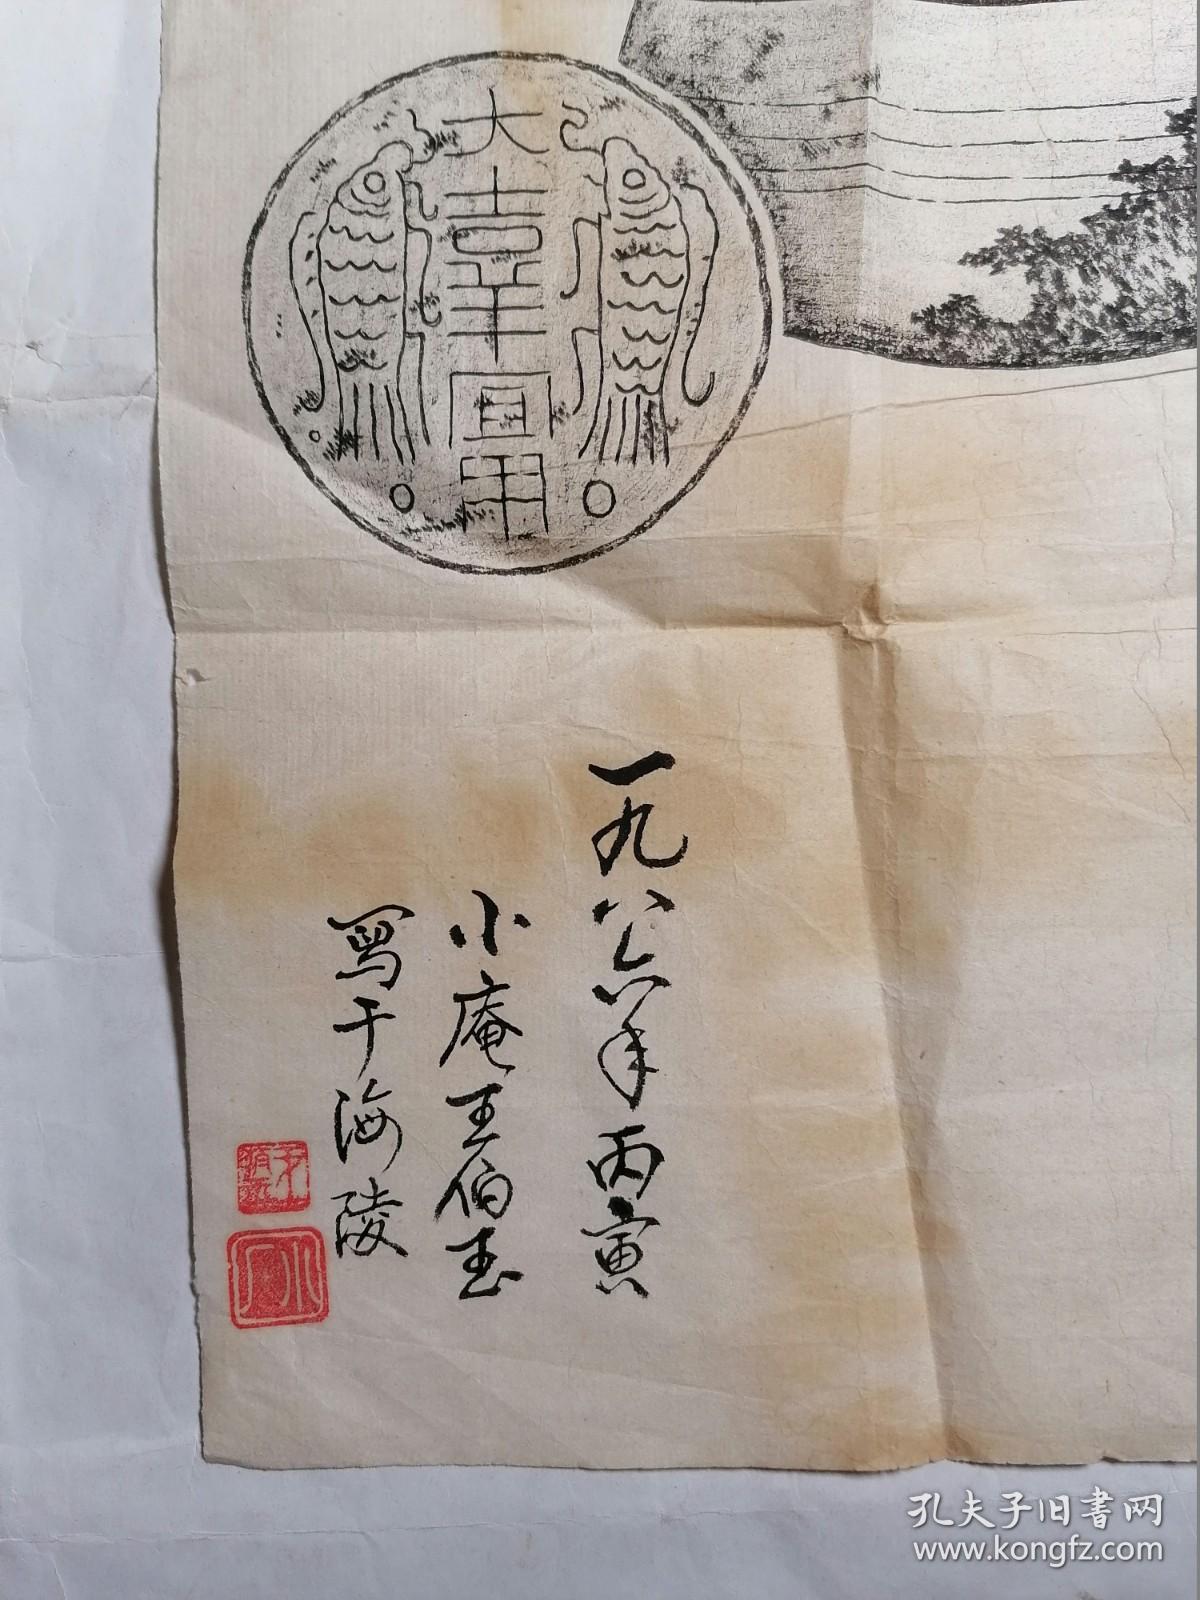 大吉羊宜用
一九八六年丙寅
小庵王伯玉
写于海陵
孔夫子旧书网
www.kongfz.com